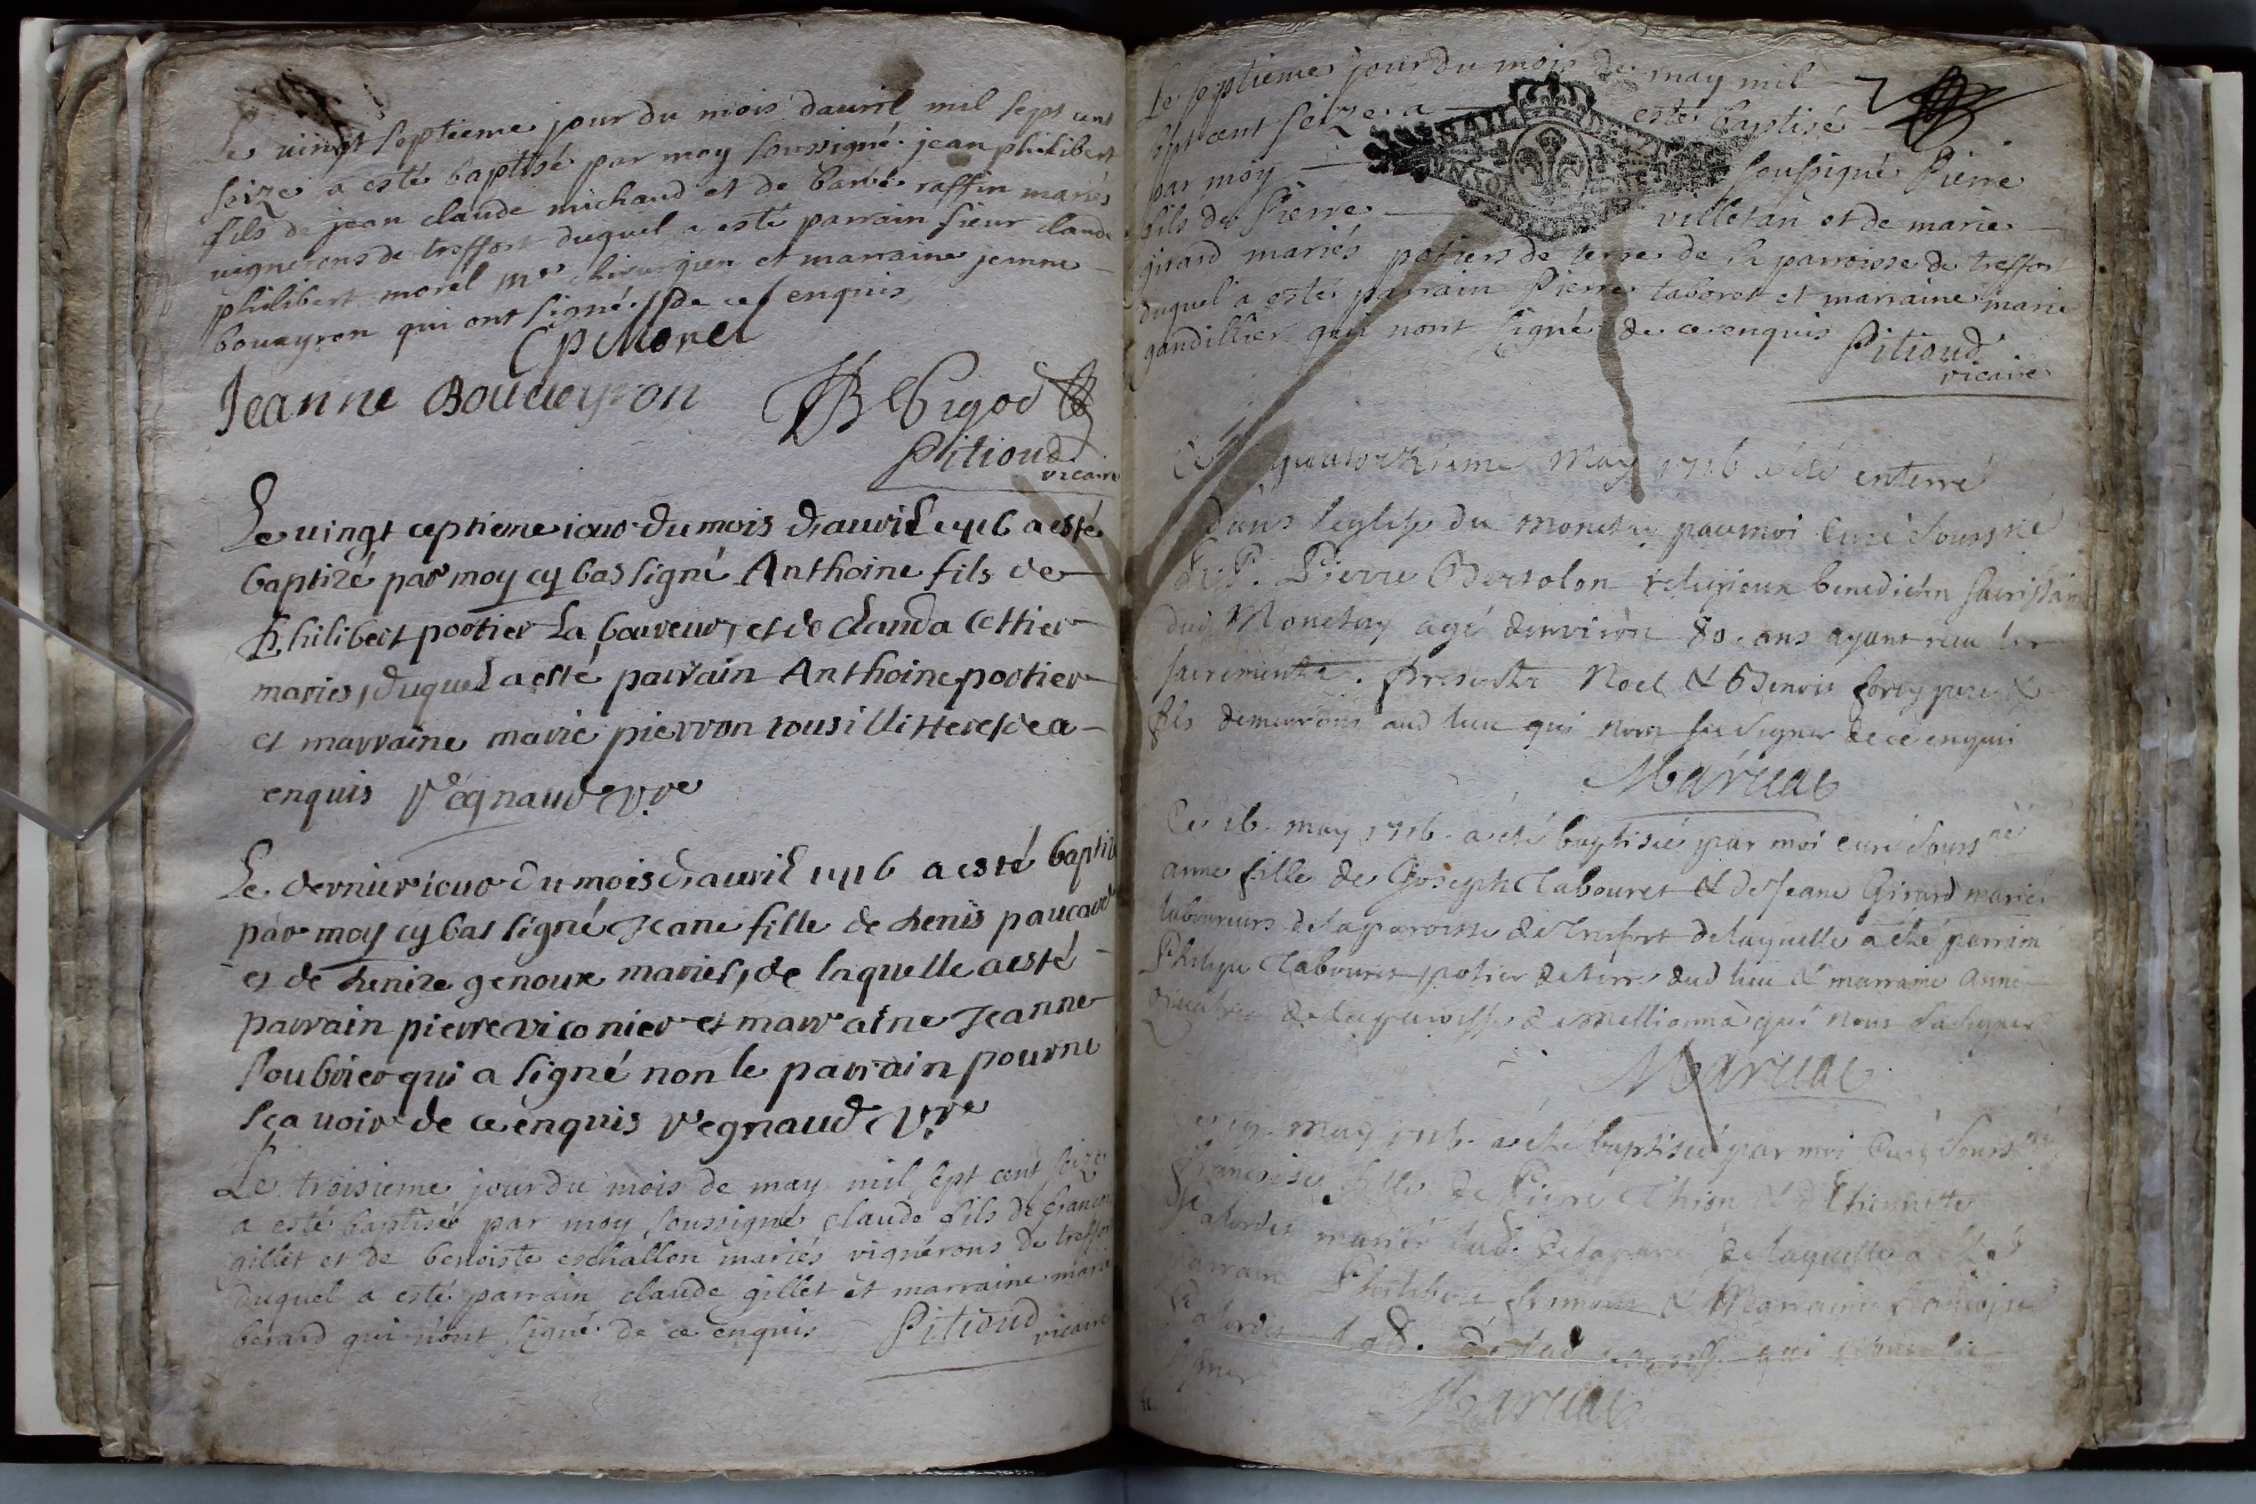 Le vingt septieme jour du mois d'auril mil sept cent
seize a esté baptisé par moy soussigné jean philibert
fils de jean claude michaud et de barbe raffin mariés
vignerons de treffort duquel a esté parrain sieur claude
philibert morel me chirurgien et marraine jeanne
bouayron qui ont signé de ce enquis
CPMorel
Jeanne Boucueyron
Pitioud
vicaire
Le vingt ceptieme iour du mois d'auril 1716 a esté
baptizé par moy cy bas signé Anthoine fils de
Philibert portier La boureur, et de clauda Cottier
maries, duquel a esté parrain Anthoine portier
et marraine marie pierron tous illitteres de ce
enquis Regnaud Vre
Le dernier iour du mois d'auril 1716 a esté baptizé
par moy cy bas signé Jeane fille de denis paucard
et de denize genoux maries, de laquelle a esté
parrain pierre viconier et marraine Jeanne
Soubrier qui a signé non le parrain pour ne
sçavoir de ce enquis Regnaud Vre
Le troisieme jour du mois de may mil sept cent seize
a esté baptisé par moy soussigné claude fils de francois
gillet et de benoiste eschallon mariés vignerons de treffort
duquel a esté parrain claude gillet et marraine marie
berard qui n'ont signé de ce enquis Pitioud
vicaire
Le septieme jour du mois de may mil
sept cent seize a esté baptisé
par moy soussigné Pierre
fils de Pierre villetan et de marie
girard mariés potiers de terre de la parroisse de treffort
duquel a esté parrain Pierre taboret et marraine marie
gandillier qui n'ont signé de ce enquis Pitioud
vicaire
Ce quatorzieme May 1716 a été enterré
dans l'eglise du monetay par moi curé sousné
R. P. Pierre Bertolon religieux benedictin sacristain
dud Monetay agé d'environ 80 ans ayant reçu les
sacrements. Presents Noel & Benoit pere &
fils demeurans aud lieu qui n'ont su signer de ce enquis
Maruat
Ce 16 may 1716 a été baptisée par moi curé sousné
anne fille de Joseph Tabouret & de Jeane Girard mariés
laboureurs de la paroisse de Treffort de laquelle a été parrain
Philipe Tabouret potier de terre dud lieu & marraine Anne
de la paroisse de Meillionna qui n'ont su signer
Maruat
19 may 1716 a été baptisée par moi curé sousné
francoise fille de Pierre Thion & d'Thiennette
mariés de laquelle a été
parrain Philibert & Marraine francoise
qui n'ont su
signer
Maruat